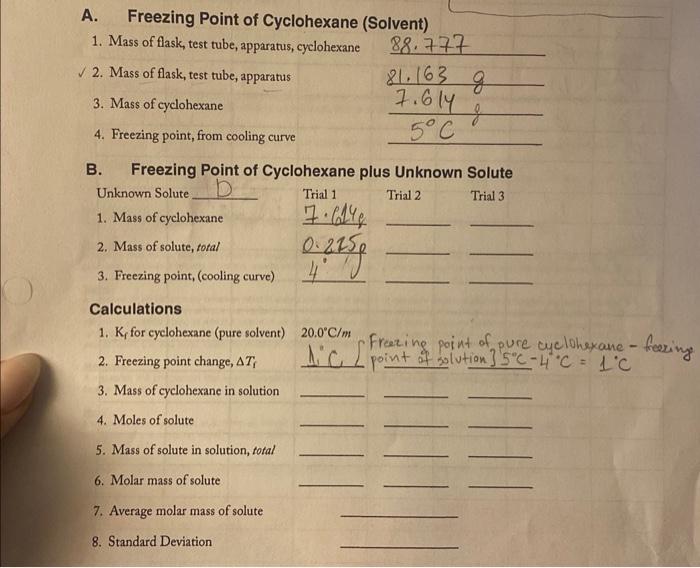 A. Freezing Point of Cyclohexane (Solvent)
1. Mass of flask, test tube, apparatus, cyclohexane 88.777
✓ 2. Mass of flask, test tube, apparatus 81.163 g
3. Mass of cyclohexane 7.614 g
4. Freezing point, from cooling curve 5°C
B. Freezing Point of Cyclohexane plus Unknown Solute
Unknown Solute D Trial 1 Trial 2 Trial 3
1. Mass of cyclohexane 7.614g
2. Mass of solute, total 0.225g
3. Freezing point, (cooling curve) 4°
Calculations
1. Kf for cyclohexane (pure solvent) 20.0°C/m
[Freezing point of pure cyclohexane - feezing
2. Freezing point change, ΔTf 1°C point of solution] 5°C - 4°C = 1°C
3. Mass of cyclohexane in solution
4. Moles of solute
5. Mass of solute in solution, total
6. Molar mass of solute
7. Average molar mass of solute
8. Standard Deviation